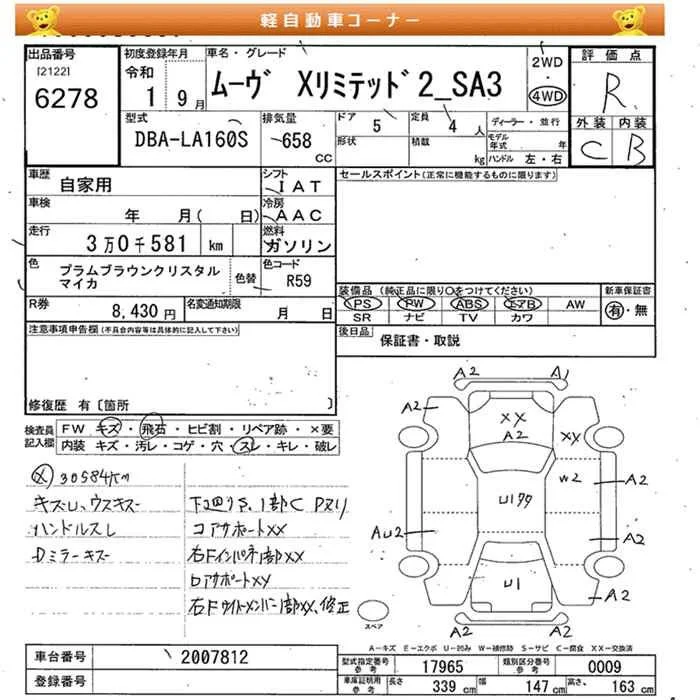 軽自動車コーナー
出品番号 初度登録年月 車名・グレード 2WD 評価点
[2122] 令和 ムーヴ Xリミテッド2_SA3 4WD R
6278 1 9月
型式 排気量 ドア 5 定員 4 人 ディーラー・並行 外装 内装
DBA-LA160S 658 CC 形状 積載 kg モデル年式 年 C B
ハンドル 左・右
車歴 自家用 シフト IAT セールスポイント(正常に機能するものに限ります)
車検 年 月( 日) 冷房 AAC
走行 3万0千581 km 燃料 ガソリン
色 プラムブラウンクリスタルマイカ 色替 色コード R59
装備品 (純正品に限り○をつけてください) 新車保証書
PS PW ABS エアB AW 有・無
SR ナビ TV カワ
R券 8,430円 名変通知期限 月 日
後日品 保証書・取説
注意事項申告欄(不具合内容等は具体的に記入して下さい)
修復歴 有〔箇所 〕
検査員記入欄 FW キズ・飛石・ヒビ割・リペア跡・×要
内装 キズ・汚レ・コゲ・穴・スレ・キレ・破レ
30584KM
ハンドルスレ
Dミラーキズ
コアサポートXX
右Fインパネ部XX
A2 A1
A2 XX A2 XX
W2 A2
U1
AU2 A2
U1
A2
A2 A2
スペア
A-キズ E-エクボ U-凹み W-補修跡 S-サビ C-腐食 XX-交換済
車台番号 2007812 型式指定番号 参考 17965 類別区分番号 参考 0009
登録番号 車庫証明用 参考 長さ 339 cm 幅 147 cm 高さ 163 cm